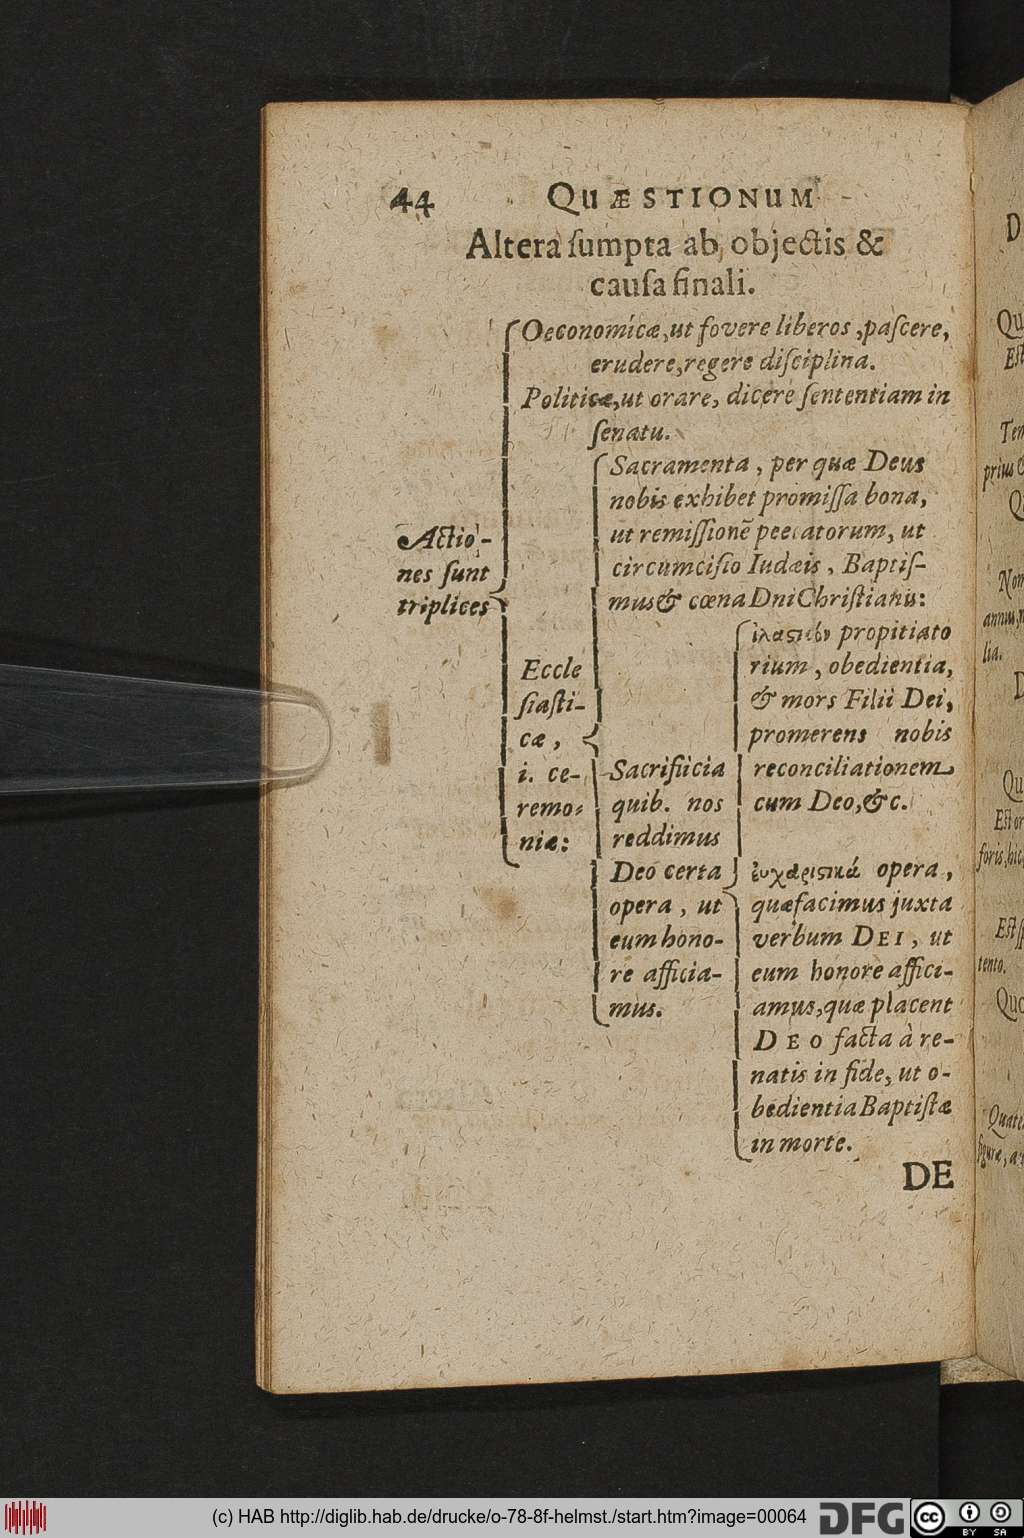 44 QUÆSTIONUM
Altera ſumpta ab objectis &
cauſa finali.
Actio-
nes ſunt
triplices
Oeconomicæ, ut fovere liberos, paſcere,
erudere, regere diſciplina.
Politicæ, ut orare, dicere ſententiam in
ſenatu.
Eccle
ſiaſti-
cæ,
i. ce-
remo-
niæ:
Sacramenta, per quæ Deus
nobis exhibet promiſſa bona,
ut remiſſionē peccatorum, ut
circumciſio Iudæis, Baptiſ-
mus & cœna Dni Chriſtianis:
Sacrificia
quib. nos
reddimus
Deo certa
opera, ut
eum hono-
re afficia-
mus.
ἱλαστικὸν propitiato
rium, obedientia,
& mors Filii Dei,
promerens nobis
reconciliationem
cum Deo, &c.
ἐυχαριστικά opera,
quæ facimus juxta
verbum DEI, ut
eum honore affici-
amus, quæ placent
DEO facta à re-
natis in fide, ut o-
bedientia Baptiſtæ
in morte.
DE
D
Qu
Eſt
Tem
prius
Q
annus,
lia.
D
Qu
Eſt or
foris, hic
Eſt ſp
tento.
Quo
figuræ, a
(c) HAB http://diglib.hab.de/drucke/o-78-8f-helmst./start.htm?image=00064
DFG
cc
BY SA